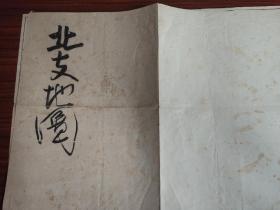 北支地圖